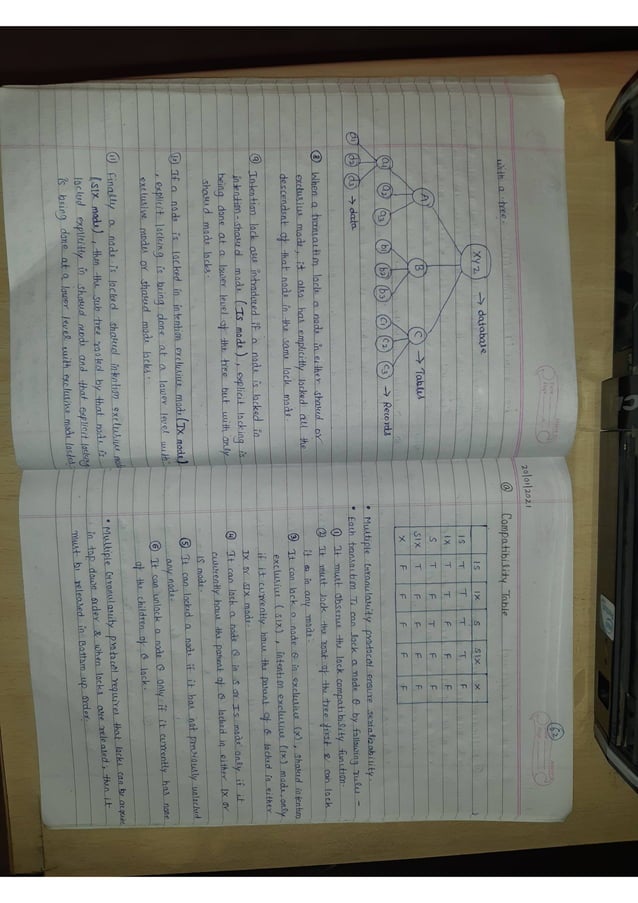 with a tree.
XYZ → database
A B C → Tables
a1 a2 a3 b1 b2 b3 c1 c2 c3 → Records
d1 d2 d3 → data
⑧ When a transaction lock a node in either shared or
exclusive mode, it also has explicitly locked all the
descendent of that node in the same lock mode.
⑨ Intention lock are introduced if a node is locked in
intention-shared mode (Is mode), explicit locking is
being done at a lower level of the tree but with only
shared mode locks.
⑩ If a node is locked in intention exclusive mode (IX mode)
, explicit locking is being done at a lower level with
exclusive modes or shared mode locks.
⑪ Finally a node is locked shared intention exclusive mode
(SIX mode), then the sub-tree rooted by that node is
locked explicitly in shared mode and that explicit locking
is being done at a lower level with exclusive mode locks.
62
20/01/2021
@ Compatibility Table
IS IX S SIX X
IS T T T T F
IX T T F F F
S T F T F F
SIX T F F F F
X F F F F F
• Multiple Granularity protocol ensure serializability.
• Each transaction Ti can lock a node Q by following rules -
① It must observe the lock compatibility function.
② It must lock the root of the tree first & can lock
it in any mode.
③ It can lock a node Q in exclusive (x), shared intention
exclusive (SIX), intention exclusive (IX) mode, only
if it currently have the parent of Q locked in either
IX or SIX mode.
④ It can lock a node Q in S or IS mode only if it
currently have the parent of Q locked in either IX or
IS mode.
⑤ It can locked a node if it has not previously unlocked
any node.
⑥ It can unlock a node Q only if it currently has none
of the children of Q lock.
• Multiple Granularity protocol requires that locks can be acquire
in top down order & when locks are released, then it
must be released in Bottom up order.